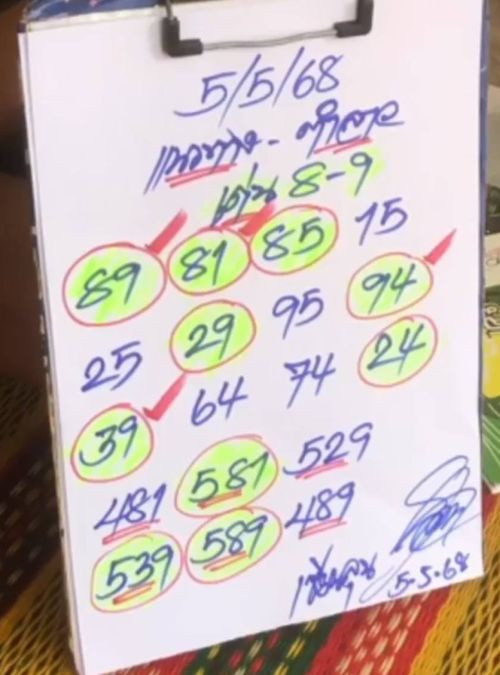 5/5/68
แนวทาง - ทำลาว
เด่น 8-9
89 81 85 15
25 29 95 94
39 64 74 24
481 581 529
539 589 489
5.5.68